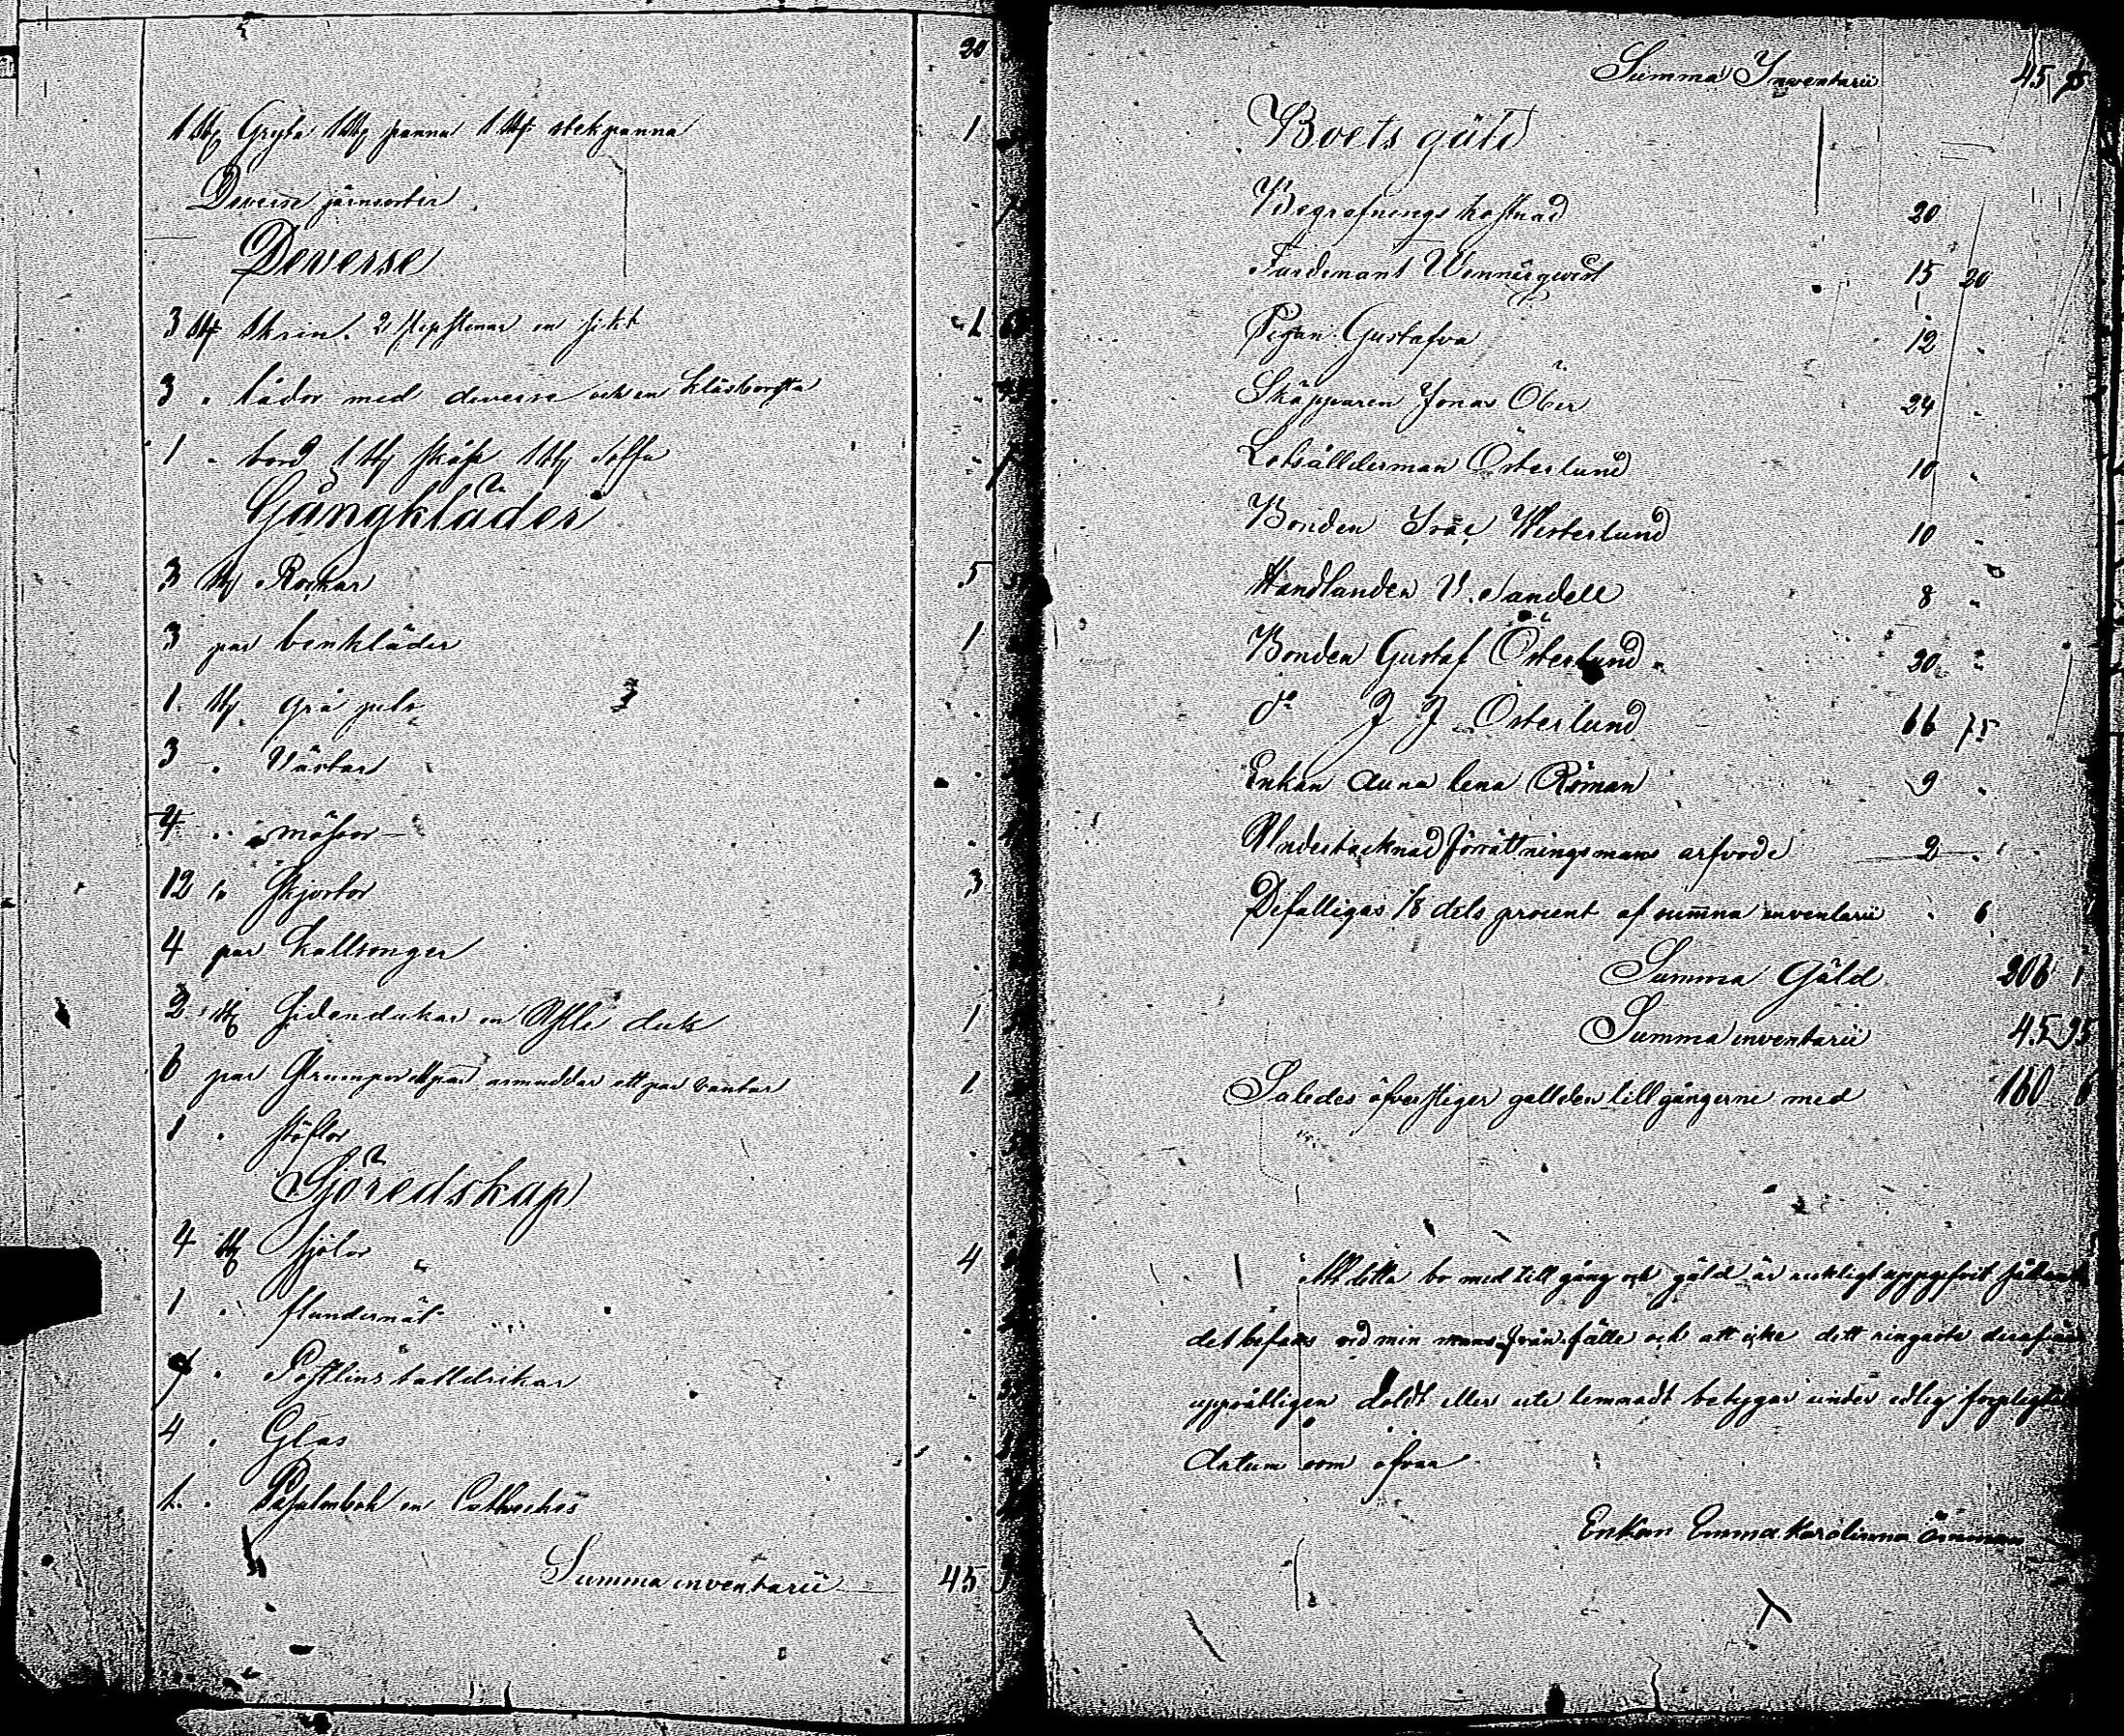 20
1 st Gryta 1 st panna 1 st stekpanna 1
Deverse järnsorter
Deverse
3 st skrin. 2 slipstenar en sikt 1
3 " lådor med deverse och en kläsborsta
1 " bord 1 st skåp 1 st soffa
Gångkläder
3 st Rockar 5
3 par benkläder 1
1. st grå pels
3 " Västar
4 " mössor
12 st Skjortor 3
4 par kallsonger
2 st Sidendukar en Ylle duk 1
6 par Strumpor ett par armuddar ett par vantar 1
1 " stöflor
Sjöredskap
4 st sjölor 4
1 " flundernät
" Postlins talldrikar
4 " Glas
1. " Psalmbok en Catheches
Summa inventarii 45
Summa Inventarii 45
Boets gäld
Begrafnings kostnad 20
Furdemant Wennerqwist 15 20
Pigan Gustafva 12 "
Skäpparen Jonas Öber 24 "
Lotsällderman Österlund 10 "
Bonden Isac Westerlund 10 "
Handlanden V. Sandell 8 "
Bonden Gustaf Österlund 30 "
do J J Österlund 66 75
Enkan Anna Lena Röman 9 "
Undertecknad förrättningsmans arfvode 2 "
Defattigas 1/8 dels procent af summa inventarii " 6
Summa Gäld 206
Summa inventarii 45 95
Saledes öfverstiger gällden tillgångerne med 160
Att detta bo med tillgång och gäld är ricktigt uppgifvit sådant
det befans vid min mans frånfälle och att icke dett ringaste deraf är
uppsåtligen doldt eller ute lemnadt betygar under edlig förpligtelse
datum som ofvan
Enkan Emma Karolinna Önnman